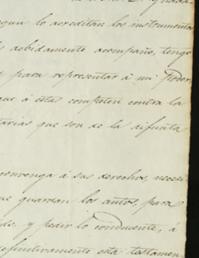 segun lo acreditan los instrumentos
debidamente acompaño, tengo
y para representar á mi Poder
que á estas competen contra la
tarias que son de la difunta
convenga á sus derechos, neces
que guarden los autos, para
y pedir lo conducente, á
definitivamente esta testamen